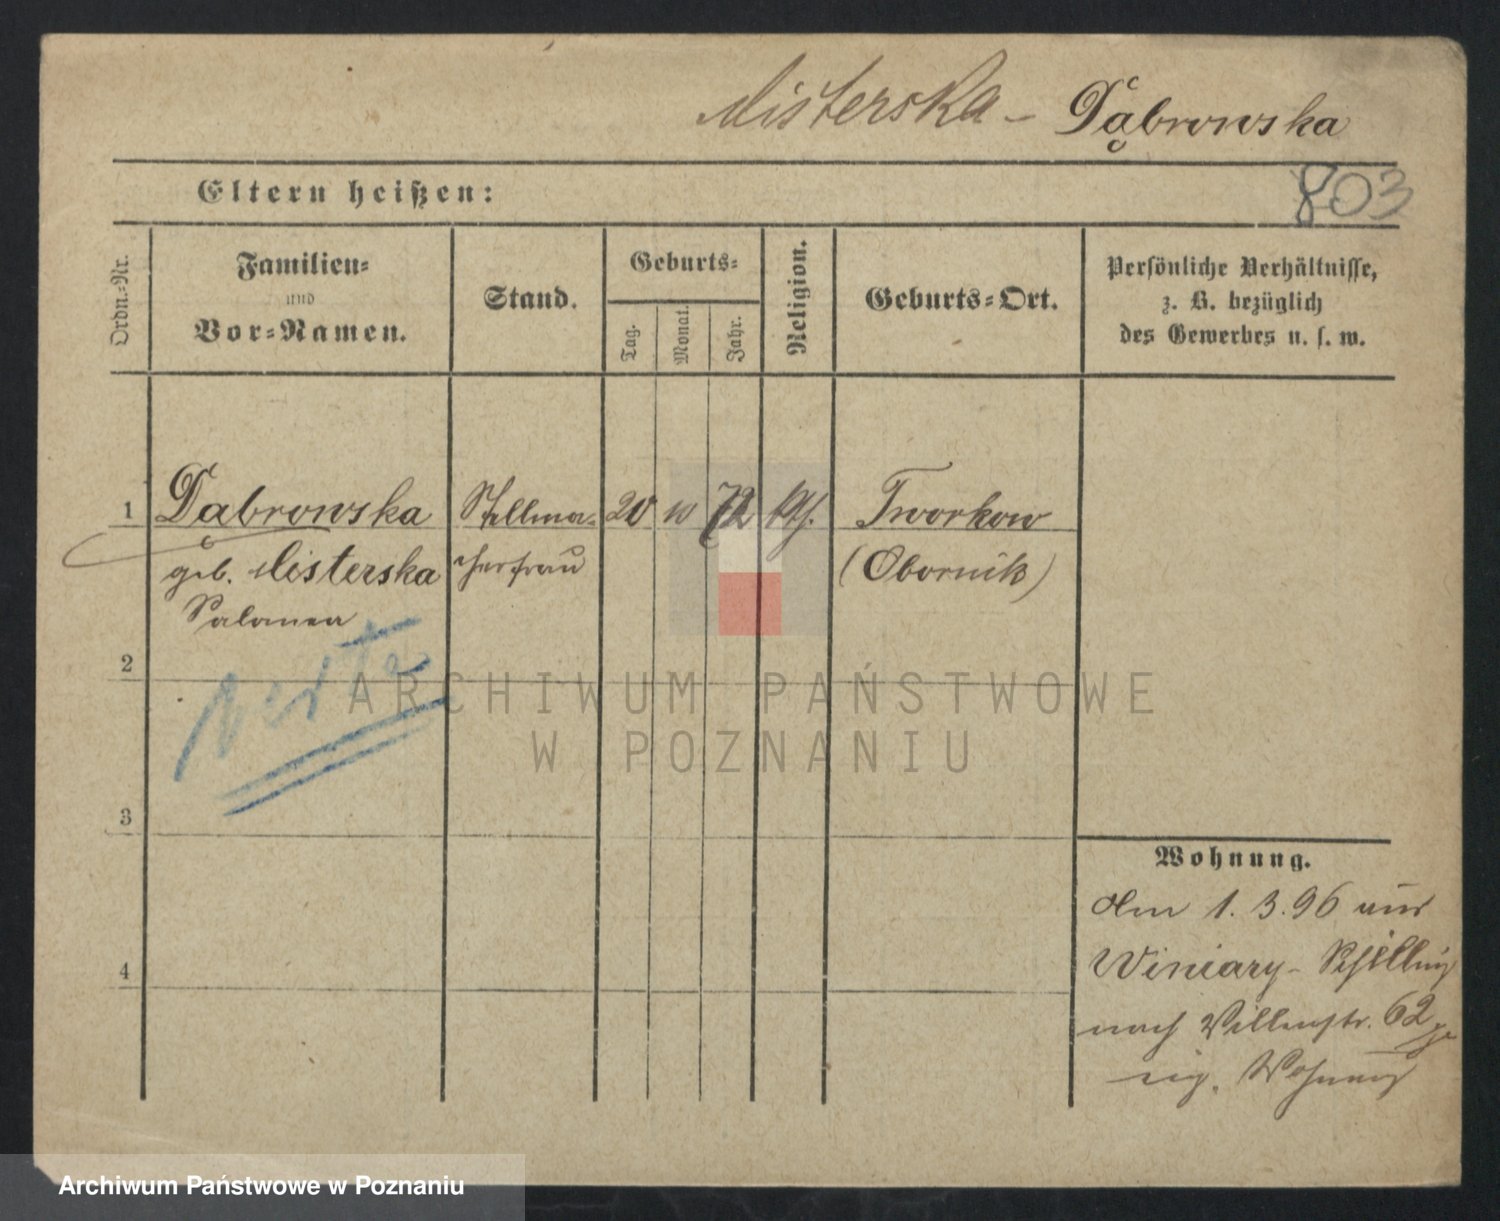 Misterska - Dąbrowska
803
Eltern heißen:
Ordn.-Nr.
Familien-
und
Vor-Namen.
Stand.
Geburts-
Tag.
Monat.
Jahr.
Religion.
Geburts-Ort.
Persönliche Verhältnisse,
z. B. bezüglich
des Gewerbes u. s. w.
1 Dąbrowska Stellma- 20 10 72 kth. Tworkow
geb. Misterska cherfrau (Obornik)
Salomea
2
3
4
Wohnung.
Am 1.3.96 aus
Winiary - Schilling
nach Villenstr. 62
eig. Wohnung
ARCHIWUM PAŃSTWOWE
W POZNANIU
Archiwum Państwowe w Poznaniu